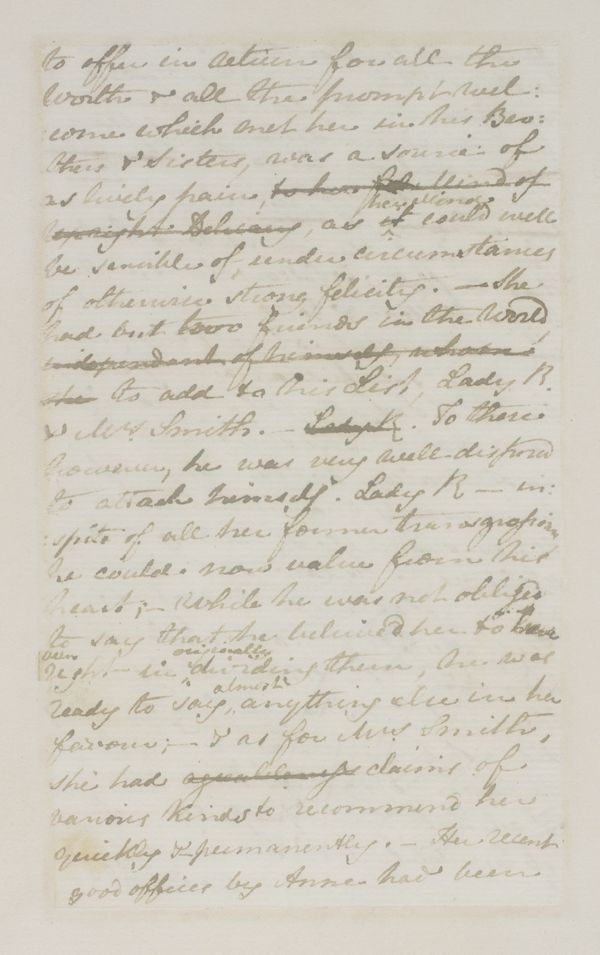 to offer in return for all the
Worth & all the prompt wel:
:come which met her in his Bro:
thers & Sisters, was a source of
as lively pain, to her Mind of
her Mind
upright Delicacy, as it could well
be sensible of, under circumstances
of otherwise strong felicity. — She
had but two friends in the World,
independant of himself, whom
she to add to his List, Lady R.
& Mrs Smith. — Lady R. To these
however, he was very well-disposed
to attach himself. Lady R — in:
:spite of all her former transgressions,
he could now value from his
heart; — While he was not obliged
to say that he believed her to have
been originally
right in dividing them, he was
almost
ready to say, anything else in her
favour; — & as for Mrs Smith,
she had claims of
various kinds to recommend her
quickly & permanently. — Her recent
good offices by Anne had been